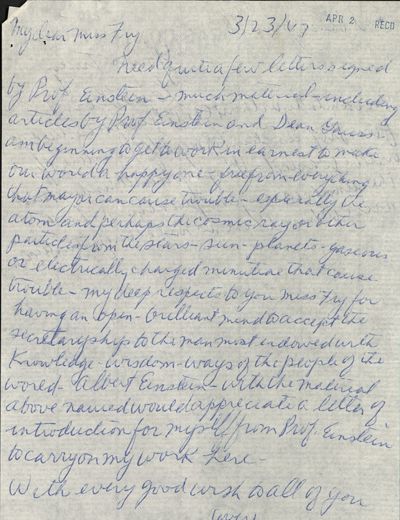 3/23/47 APR 2 RECD
My dear Miss Fry
Need quite a few letters signed
by Prof. Einstein - much material - including
articles by Prof. Einstein and Dean Gauss -
am beginning to get to work in earnest to make
our world a happy one - free from - everything
that may or can cause trouble - especially the
atom and perhaps the cosmic ray or other
particles from the stars - sun - planets - gaseous
or electrically charged minutiae that cause
trouble - my deep respects to you Miss Fry for
having an open - brilliant mind to accept the
secretaryship to the man most endowed with
Knowledge - wisdom - ways of the people of the
world - Albert Einstein - with the material
above named would appreciate a letter of
introduction for myself from Prof. Einstein
to carry on my work here -
With every good wish to all of you
(over)